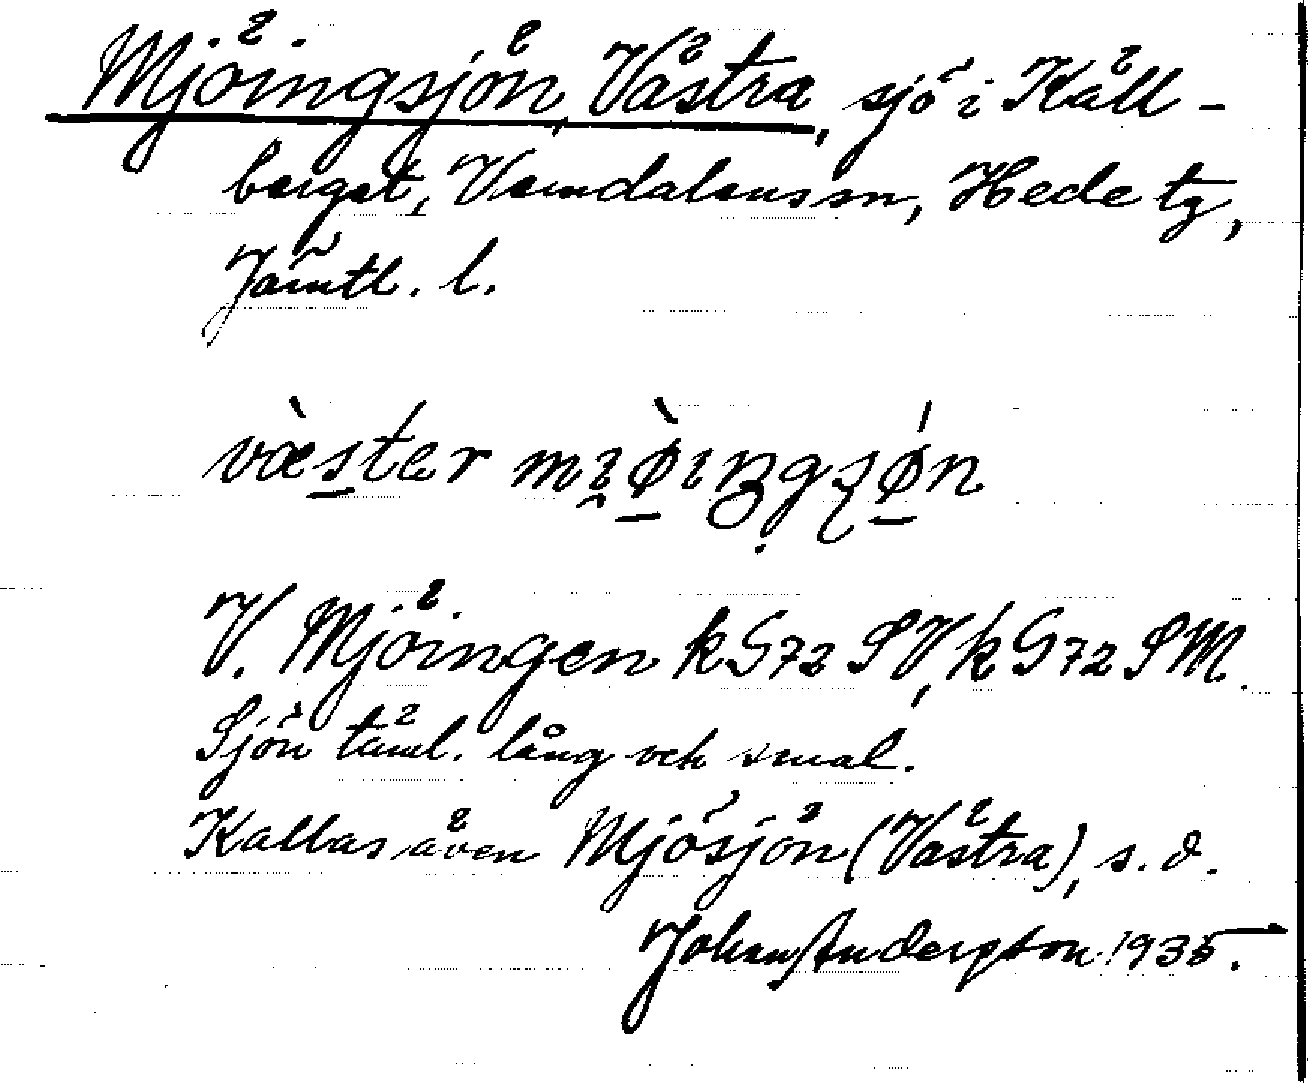 Mjöingsjön, Västra, sjö i Käll-
berget, Vemdalens sn, Hede tg,
Jämtl. l.
væster mi̯ø̀ıŋgsjøn
V. Mjöingen k G72 SV, k G72 SM.
Sjön täml. lång och smal.
Kallas även Mjösjön (Västra), s. d.
Johan Andersson 1935.